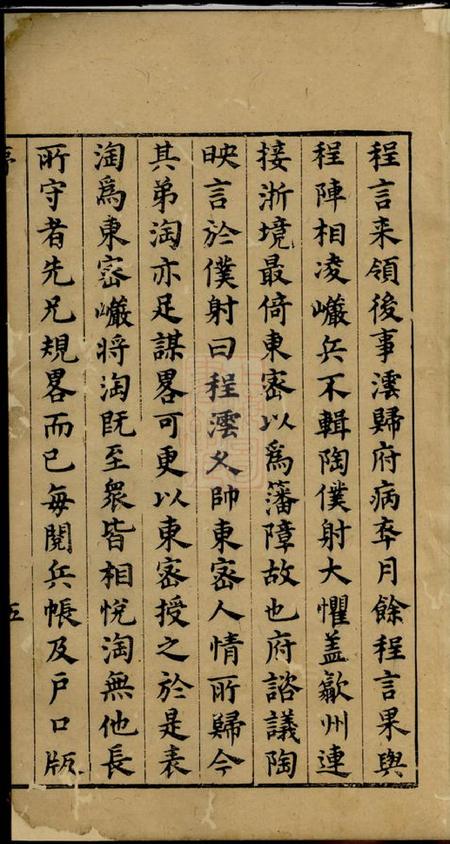 程言来領後事澐歸府病卒月餘程言果與
程陣相凌巘兵不輯陶僕射大懼盖歙州連
接浙境最倚東宻以爲藩障故也府諮議陶
映言於僕射曰程澐久帥東宻人情所歸今
其弟淘亦足謀畧可更以東宻授之於是表
淘爲東宻巖將淘旣至衆皆相恱淘無他長
所守者先兄規畧而已每閱兵帳及戸口版
五